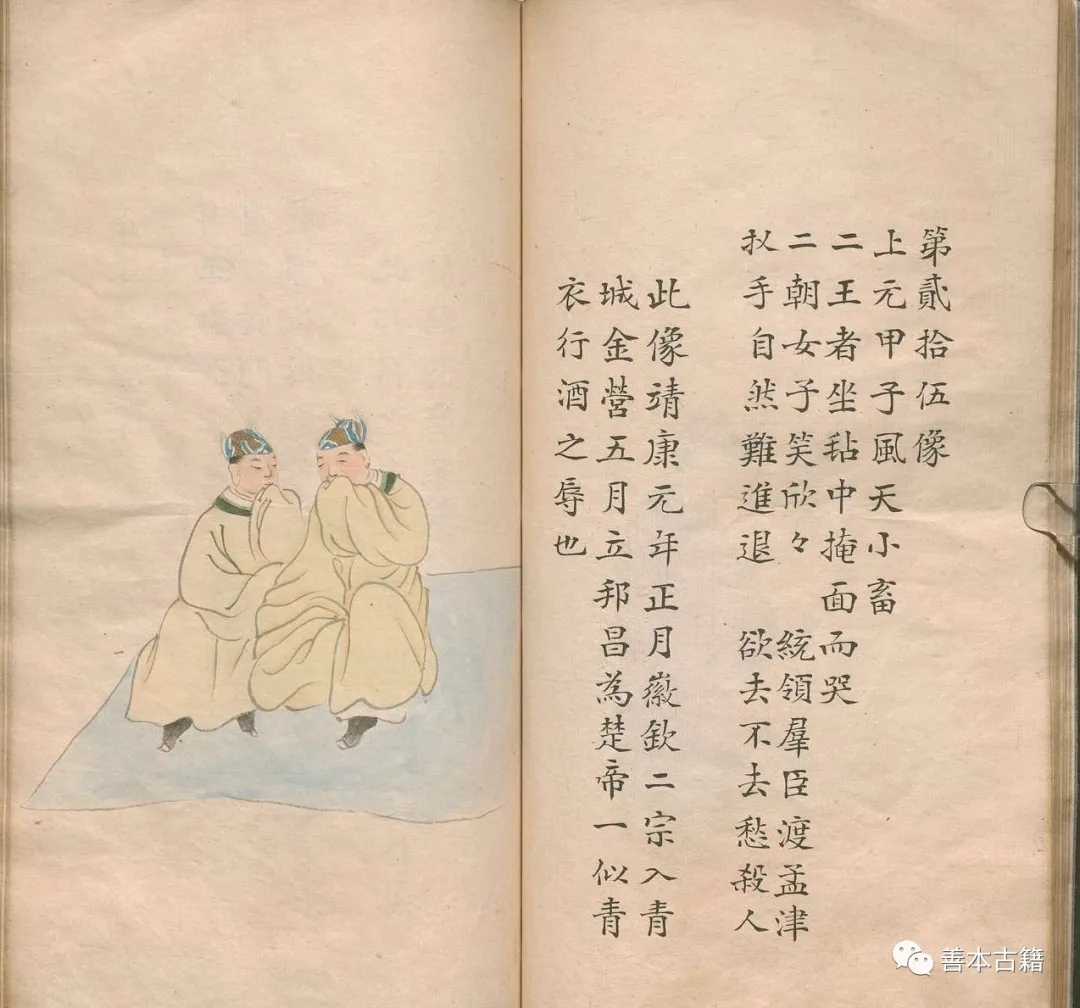 第貳拾伍像
上元甲子風天小畜
二王者坐毡中掩面而哭
二朝女子笑欣々 統領羣臣渡孟津
扙手自然難進退 欲去不去愁殺人
此像靖康元年正月徽欽二宗入青
城金營五月立邦昌為楚帝一似青
衣行酒之辱也
善本古籍